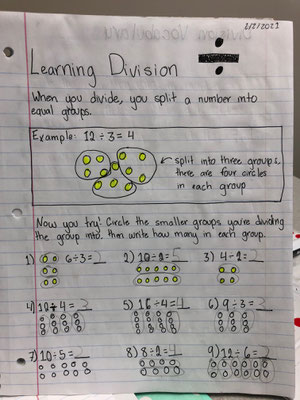 2/2/2021
÷
Learning Division
When you divide, you split a number into
equal groups.
Example: 12 ÷ 3 = 4
split into three groups,
there are four circles
in each group
Now you try! Circle the smaller groups you're dividing
the group into, then write how many in each group.
1) 6÷3=2 2) 10÷2=5 3) 4÷2=2
4) 12÷4=3 5) 16÷4=4 6) 9÷3=3
7) 10÷5=2 8) 8÷2=4 9) 12÷6=2